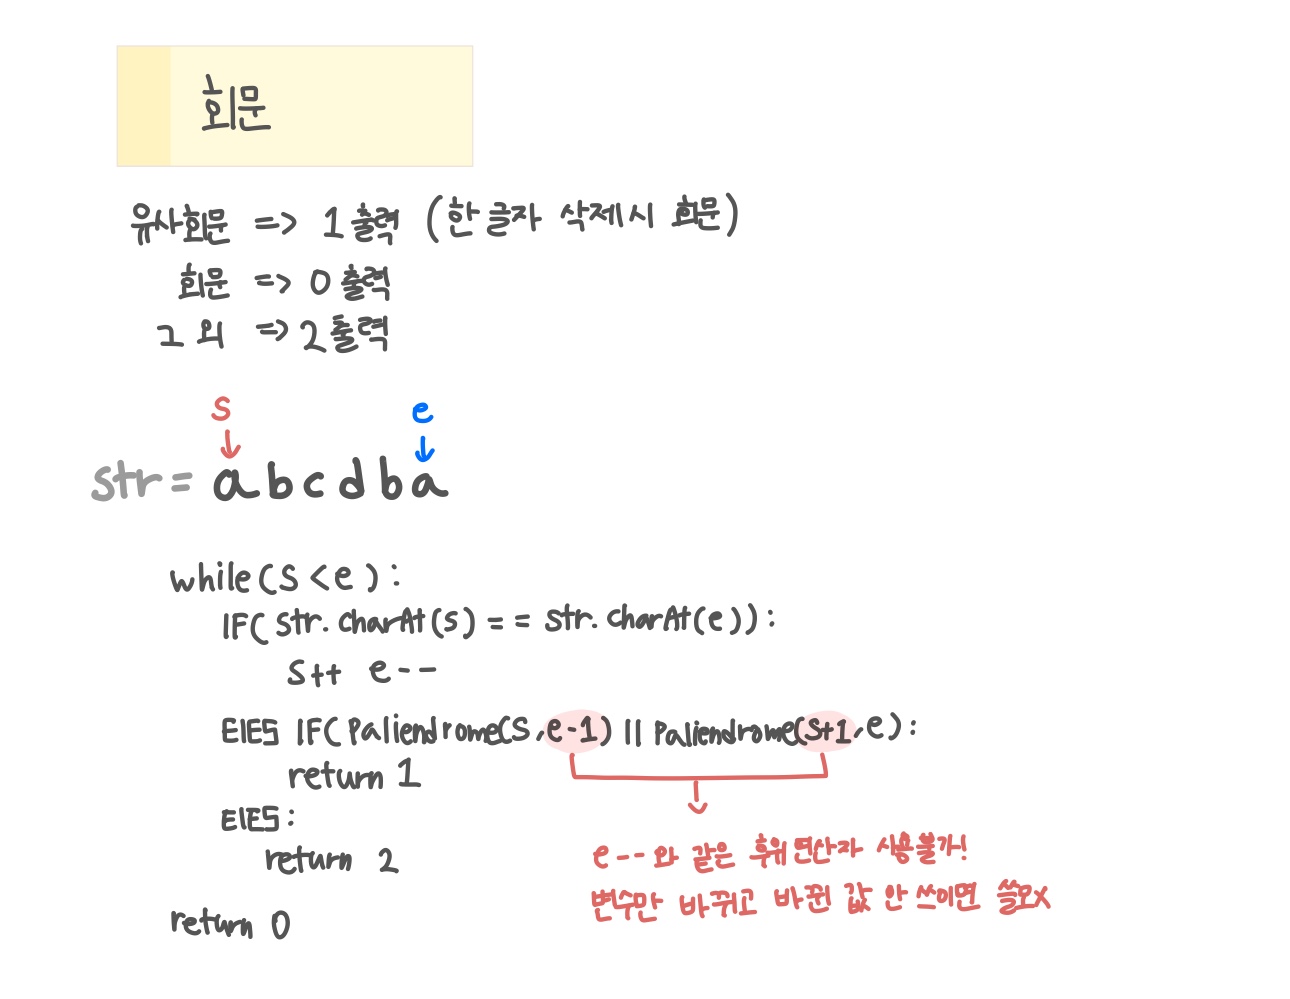 회문
유사회문 => 1 출력 (한 글자 삭제시 회문)
회문 => 0 출력
그 외 => 2 출력
s e
str = a b c d b a
while(s < e):
IF(str.charAt(s) == str.charAt(e)):
s++ e--
ElES IF(Paliendrome(s,e-1) || Paliendrome(s+1,e):
return 1
ElES:
return 2
e--와 같은 후위 연산자 사용 불가!
변수만 바뀌고 바뀐 값 안 쓰이면 쓸모X
return 0